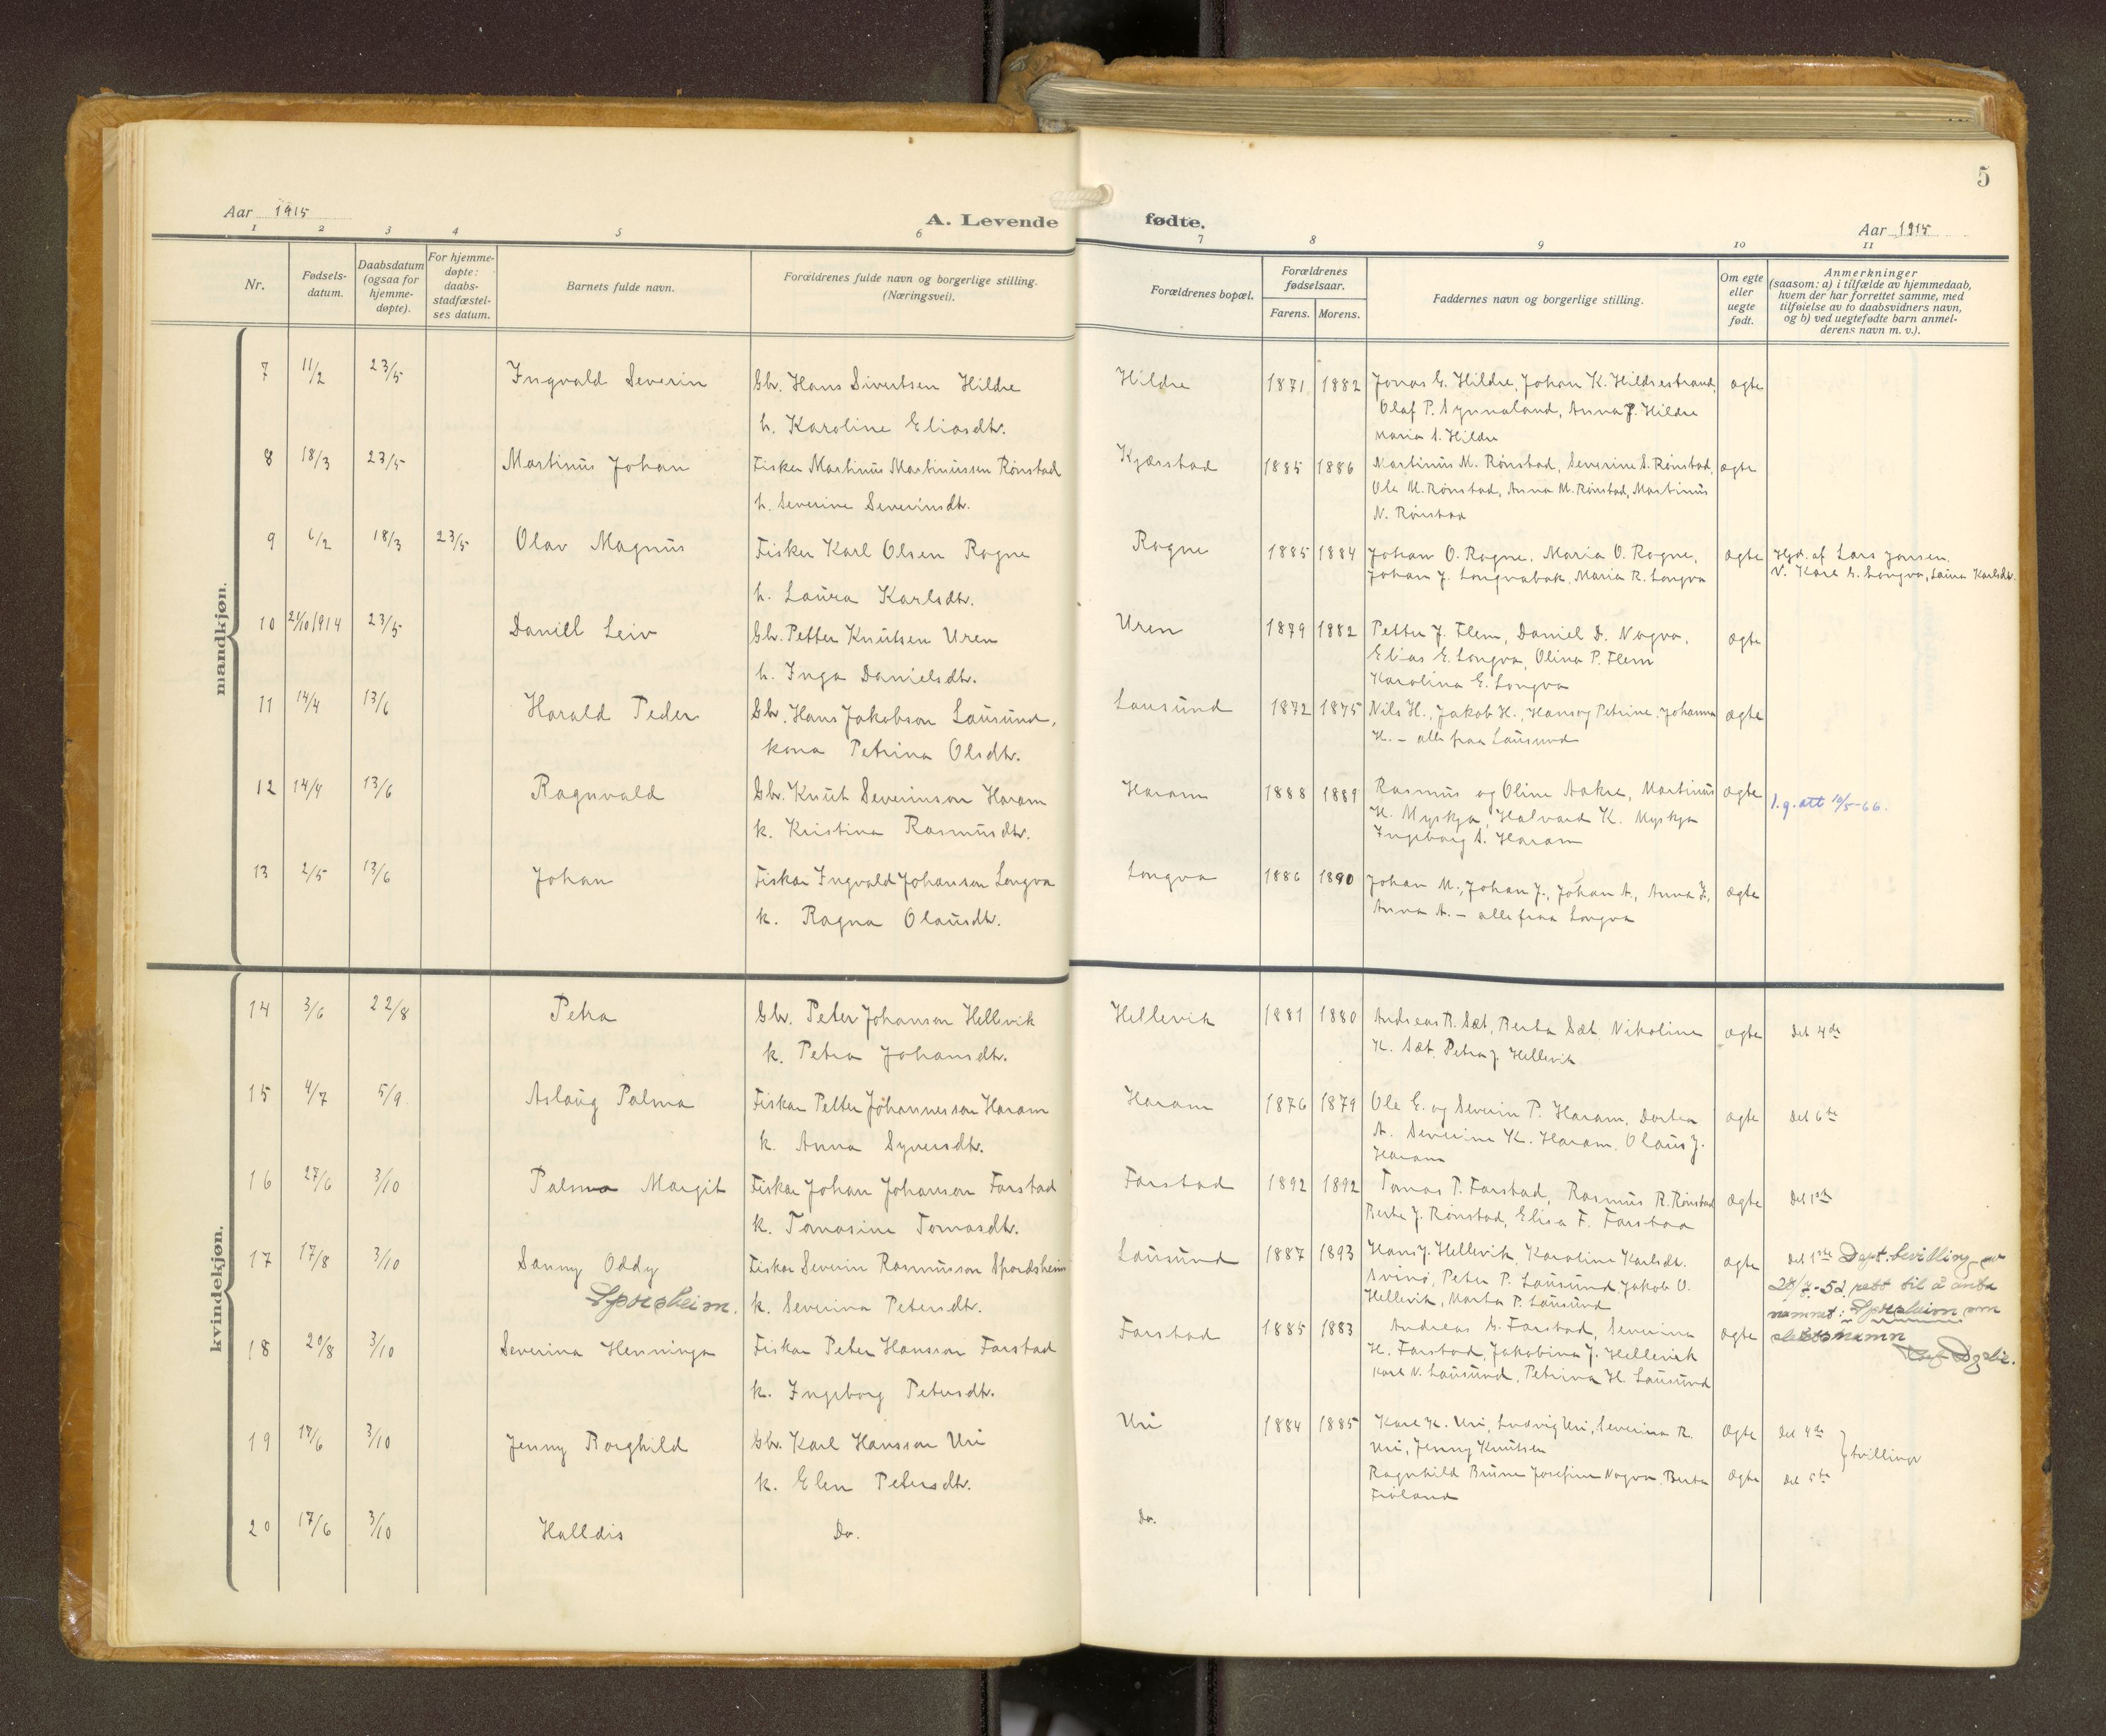 5
Aar 1915
A. Levende
fødte.
Aar 1915
1 2 3 4 5 6 7 8 9 10 11
Nr.
Fødsels-
datum.
Daabsdatum
(ogsaa for
hjemme-
døpte).
For hjemme-
døpte:
daabs-
stadfæstel-
ses datum.
Barnets fulde navn.
Forældrenes fulde navn og borgerlige stilling.
(Næringsvei).
Forældrenes bopæl.
Forældrenes
fødselsaar.
Farens. Morens.
Faddernes navn og borgerlige stilling.
Om egte
eller
uegte
født.
Anmerkninger
(saasom: a) i tilfælde av hjemmedaab,
hvem der har forrettet samme, med
tilføielse av to daabsvidners navn,
og b) ved uegtefødte barn anmel-
derens navn m. v.).
mandkjøn.
7 11/2 23/5 Ingvald Severin Gbr. Hans Sivertsen Hildre Hildre 1871 1882 Jonas E. Hildre, Johan K. Hildrestrand, ægte
h. Karoline Eliasdtr. Olaf P. Synnaland, Anna J. Hildre
Maria S. Hildre
8 18/3 23/5 Martinus Johan Fisker Martinus Martinussen Rønstad Kjærstad 1885 1886 Martinus M. Rønstad, Severine S. Rønstad, ægte
h. Severine Severinsdtr. Ole M. Rønstad, Anna M. Rønstad, Martinus
N. Rønstad
9 6/2 18/3 23/5 Olav Magnus Fisker Karl Olsen Rogne Rogne 1885 1884 Johan O. Rogne, Maria O. Rogne, ægte Hjd. af Lars Jonsen.
h. Laura Karlsdtr. Johan J. Longvabak, Maria R. Longva V. Karl L. Longva, Laura Karlsdtr.
10 21/10 1914 23/5 Daniel Leiv Gbr. Petter Knutsen Uren Uren 1879 1882 Petter J. Flem, Daniel D. Nogva, ægte
h. Inga Danielsdtr. Elias E. Longva, Olina P. Flem
Karolina E. Longva
11 14/4 13/6 Harald Peder Gbr. Hans Jakobson Lausund, Lausund 1872 1875 Nils H., Jakob H., Hans og Petrine, Johanna ægte
kona Petrina Olsdtr. H. – alle fraa Lausund
12 14/4 13/6 Ragnvald Gbr. Knut Severinson Haram Haram 1888 1889 Rasmus og Oline Aakre, Martinus ægte l.g.att 10/5-66.
k. Kristina Rasmusdtr. H. Myskja, Halvard K. Myskja
Ingeborg S. Haram
13 2/5 13/6 Johan Fiskar Ingvald Johanson Longva Longva 1886 1890 Johan M., Johan J., Johan A., Anna J., ægte
k. Ragna Olausdtr. Anna A. – alle fraa Longva
kvindekjøn.
14 3/6 22/8 Petra Gbr. Peter Johanson Hellevik Hellevik 1881 1880 Andreas R. Sæt, Berta Sæt, Nikoline ægte det 4de
k. Petra Johansdtr. K. Sæt, Petra J. Hellevik
15 4/7 5/9 Aslaug Palma Fiskar Petter Johannesson Haram Haram 1876 1879 Ole E. og Severin P. Haram, Dortea ægte det 6te
k. Anna Syversdtr. A. Severine K. Haram, Olaus J.
Haram
16 27/6 3/10 Palma Margit Fiskar Johan Johanson Farstad Farstad 1892 1892 Tomas P. Farstad, Rasmus R. Rønstad ægte det 1ste
k. Tomasine Tomasdtr. Berta J. Rønstad, Elisa F. Farstad
17 17/8 3/10 Sanny Oddy Fiskar Severin Rasmusson Spordsheim Lausund 1887 1893 Hans J. Hellevik, Karoline Karlsdt. ægte det 1ste Dept. bevilling av
Sporsheim. k. Severina Petersdtr. Svinø, Peter P. Lausund, Jakob O. 28/7-52 rett til å anta
Hellevik, Marta P. Lausund namnet: Sporsheim som
18 20/8 3/10 Severina Henninga Fiskar Peter Hansson Farstad Farstad 1885 1883 Andreas L. Farstad, Severina ægte slektsnamn
k. Ingeborg Petersdtr. H. Farstad, Jakobina J. Hellevik
Karl N. Lausund, Petrina H. Lausund
19 17/6 3/10 Jenny Borghild Gbr. Karl Hansson Uri Uri 1884 1885 Karl K. Uri, Ludvig Uri, Severina R. ægte det 4de
k. Elen Petersdtr. Uri, Jenny Knutsen } tvillingr
20 17/6 3/10 Halldis Do. Do. Ragnhild Bruun Josefine Nogva, Berta ægte det 5te
Fröland